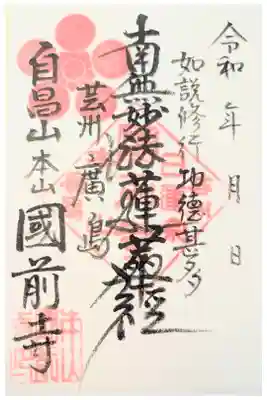 令和 年 月 日
如説修行功徳甚多
南無妙法蓮華経
芸州廣島
自昌山本山國前寺